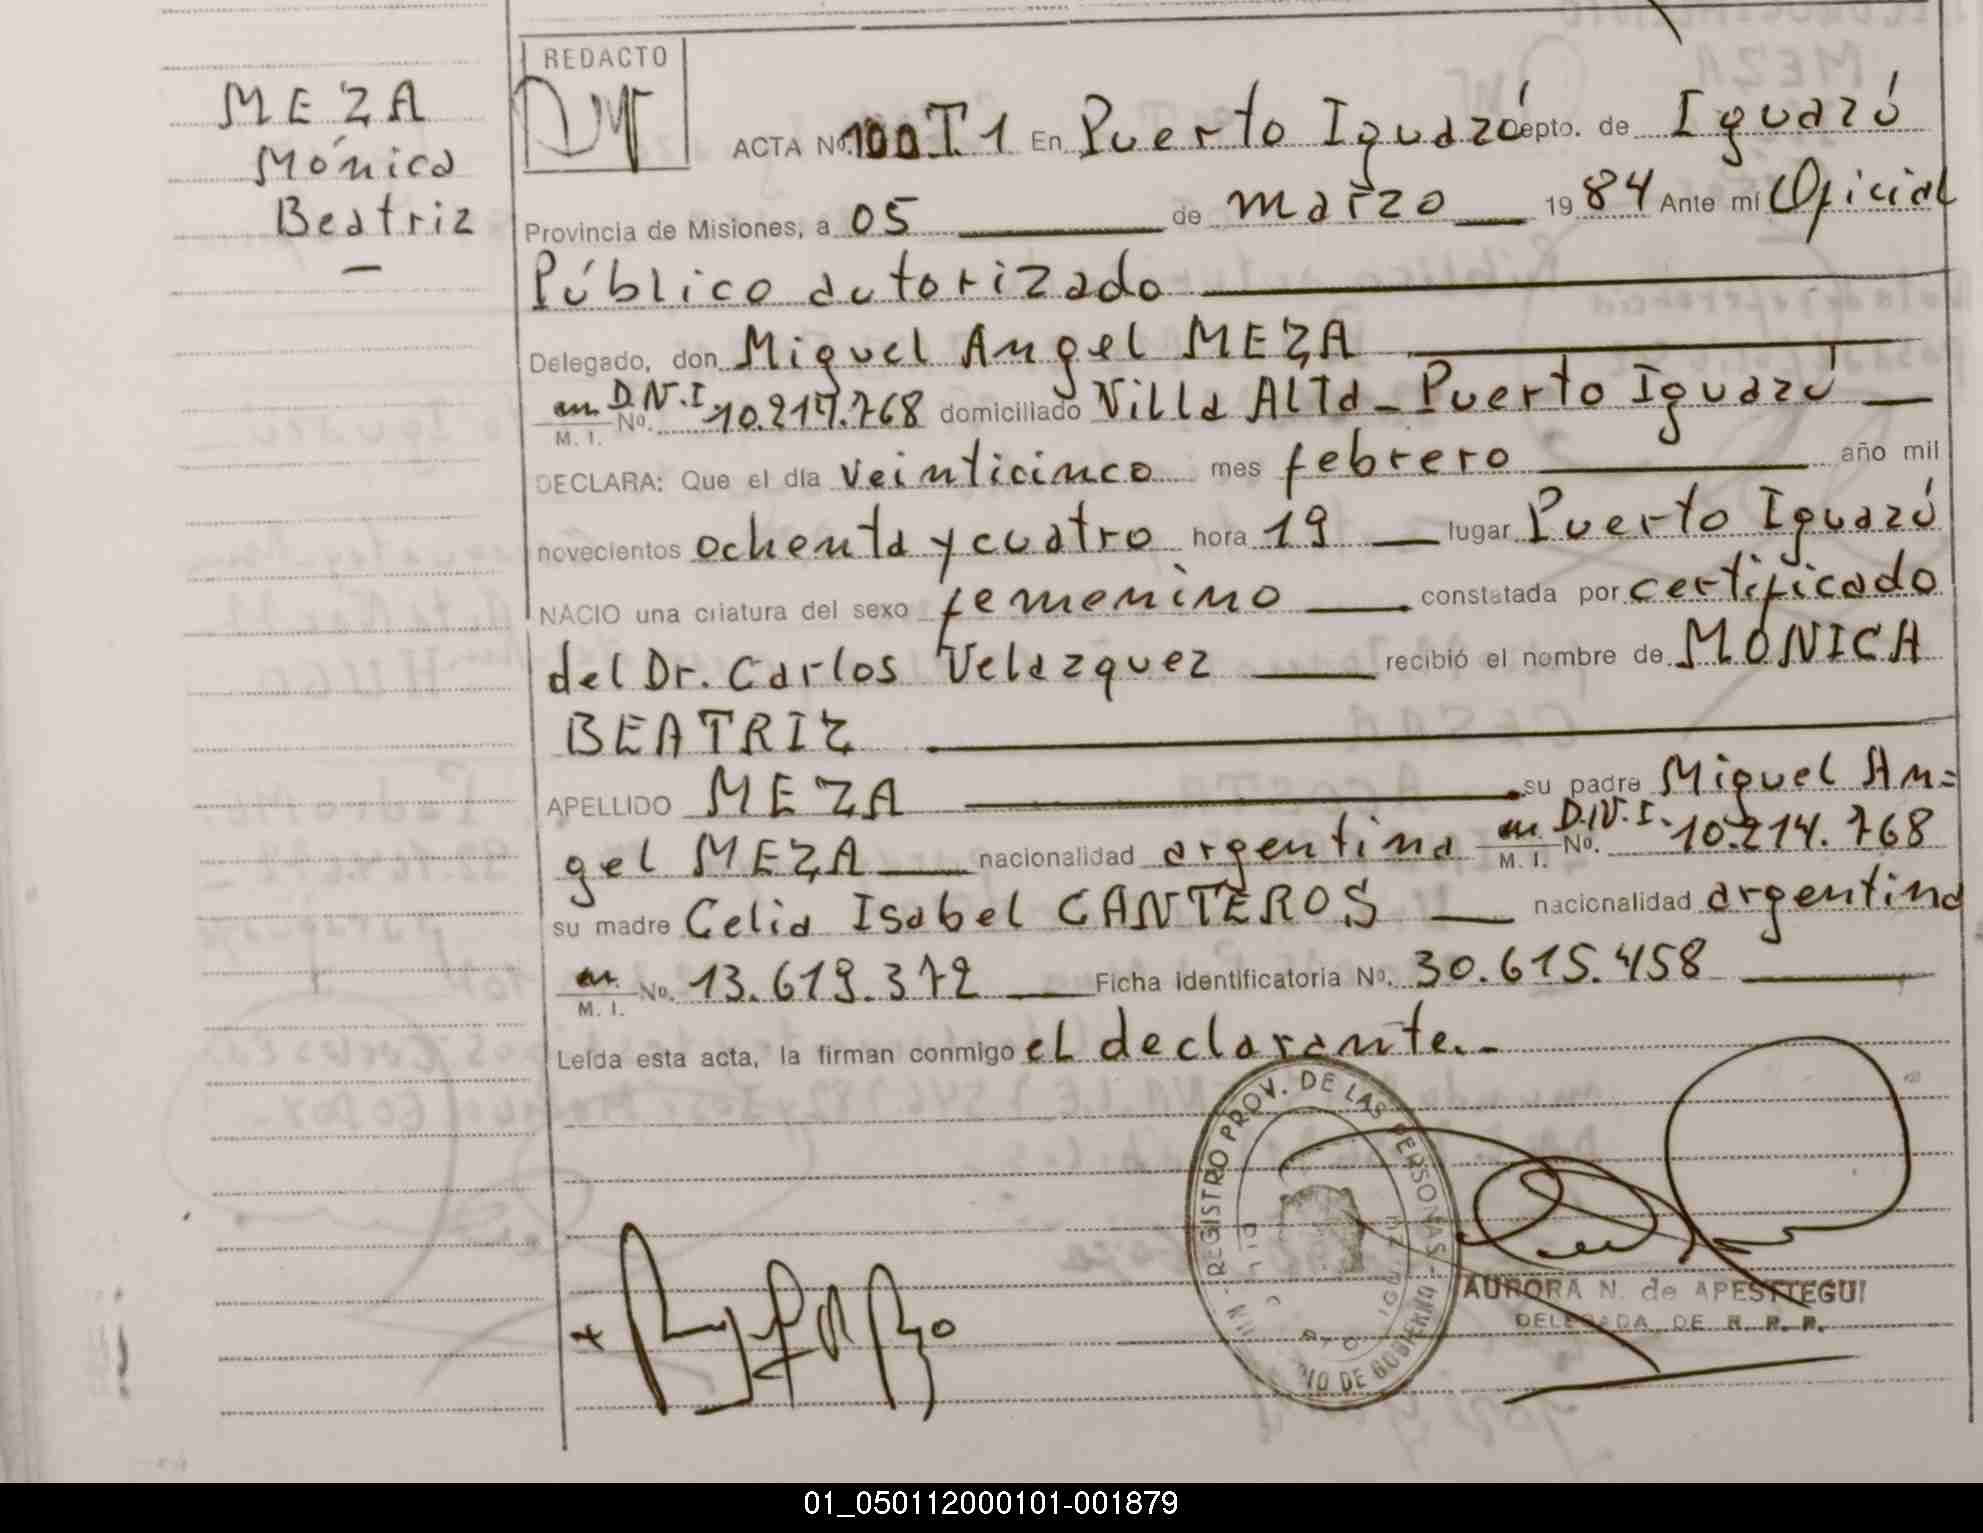 MEZA
Mónica
Beatriz
REDACTO
ACTA Nº 100 T.1 En Puerto Iguazú Depto. de Iguazú
Provincia de Misiones, a 05 de marzo 1984 Ante mí Oficial
Público autorizado
Delegado, don Miguel Angel MEZA
M. I. D.N.I. Nº. domiciliado Villa Alta - Puerto Iguazú
DECLARA: Que el día veinticinco mes febrero año mil
novecientos ochenta y cuatro hora 19 lugar Puerto Iguazú
NACIO una criatura del sexo femenino constatada por certificado
del Dr. Carlos Velazquez recibió el nombre de MONICA
BEATRIZ
APELLIDO MEZA su padre Miguel An=
gel MEZA nacionalidad argentina M. I. D.N.I. Nº. 10.214.768
su madre Celia Isabel CANTEROS nacionalidad argentina
M. I. Nº. 13.619.372 Ficha identificatoria Nº. 30.615.458
Leída esta acta, la firman conmigo el declarante.-
REGISTRO PROV. DE LAS PERSONAS - DE GOBIERNO
AURORA N. de APESTTEGUI
DELEGADA DE R. P. P.
01_050112000101-001879